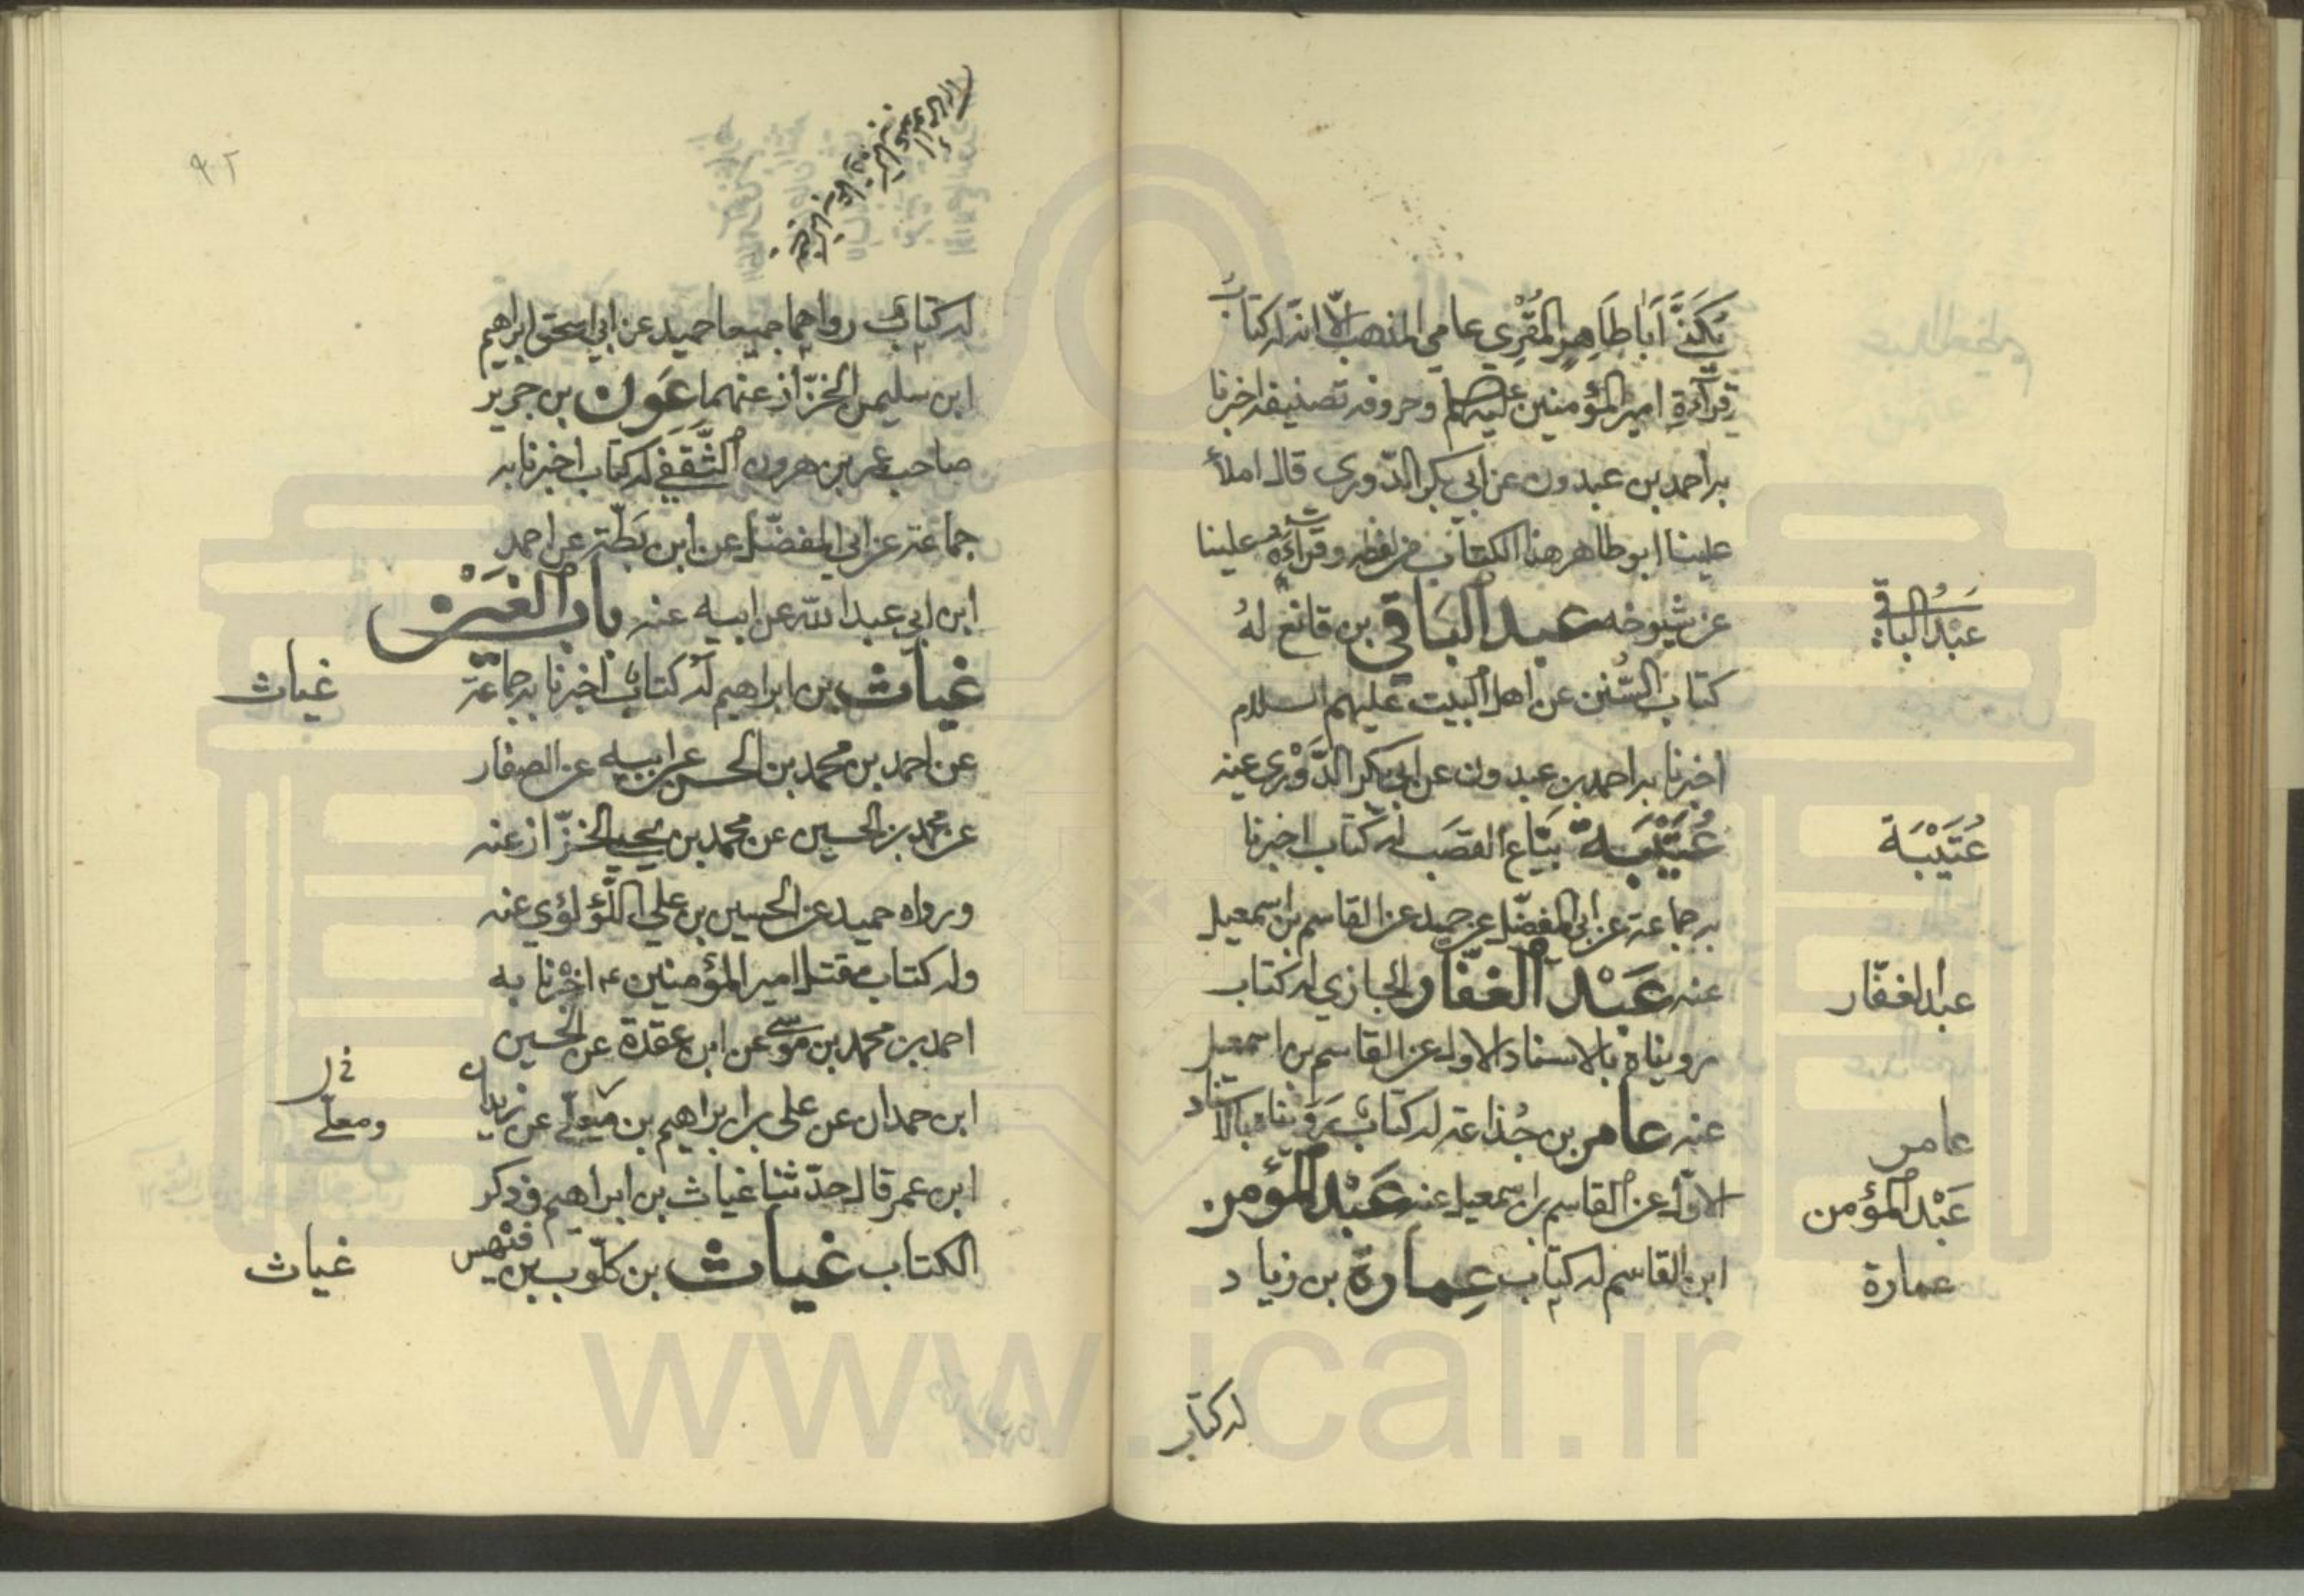 يُكَنَّى اَبَا طَاهِرٍ المُقْرِي عامي المذهب الّا انّ له كتابُ
قرآءة امير المؤمنين عليهم وحروفه تصنيفه اخبرنا
به احمد بن عبدون عن ابي بكر الدّوري قال املأ
علينا ابو طاهر هذا الكتاب من لفظه وقرأءة علينا
عن شيوخه عبد البَاقي بن قانع لهُ
كتاب السُّنن عن اهل البيت عليهم السلام
اخبرنا به احمد بن عبدون عن ابي بكر الدَّوْري عنه
عُتَيْبَة بيّاع القصَب له كتاب اخبرنا
به جماعة عن ابي المفضّل عن حميد عن القاسم بن اسمعيل
عنه عَبْد الغفّار الجازي له كتاب
رويناه بالاسناد الاول عن القاسم بن اسمعيل
عنه عامر بن جُذاعة له كتاب رَوَيْناه بالاسناد
الاوّل عن القاسم بن اسمعيل عنه عَبْد المؤمن
ابن القاسم له كتاب عِمارة بن زياد
عَبْدُ الباقي
عُتَيْبَة
عبد الغفّار
عامر
عَبْد المؤمن
عمارة
له كتاب
٩٢
له كتاب رواهما جميعا حميد عن ابي اسحق ابراهيم
ابن سليمن الخزّاز عنهما عَون بن جرير
صاحب عمر بن هرون الثَّقَفي له كتاب اخبرنا به
جماعة عن ابي المفضّل عن ابن بَطّة عن احمد
ابن ابي عبد الله عن ابيه عنه باب الغَيْن
غياث بن ابراهيم له كتاب اخبرنا به جماعة
عن احمد بن محمد بن الحسن عن ابيه عن الصفار
عن محمد بن الحسين عن محمد بن يحيي الخزّاز عنه
ورواه حميد عن الحسين بن علي اللّؤلؤي عنه
وله كتاب مقتل امير المؤمنين ع اخبرنا به
احمد بن محمد بن موسى عن ابن عقدة عن الحسين
ابن حمدان عن علي بن ابراهيم بن معلّى عن زيدان
ابن عمر قال حدّثنا غياث بن ابراهيم وذكر
الكتاب غياث بن كلّوب بن فيهس
غياث
ومعلّى
غياث